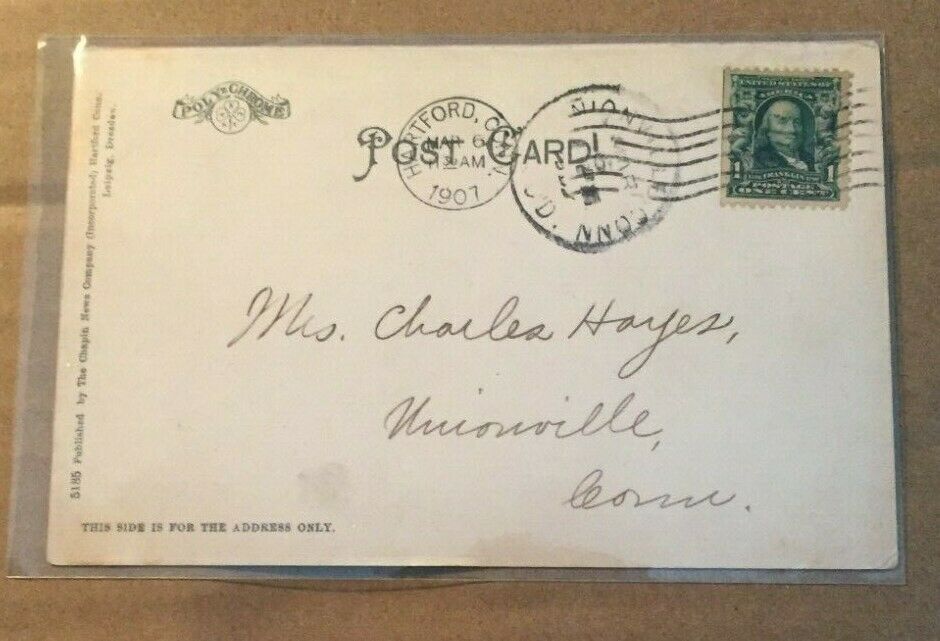 POLY-CHROME
POST CARD
HARTFORD, CONN.
MAR 6
11 AM
1907
UNIONVILLE
CONN
UNITED STATES OF AMERICA
1 FRANKLIN 1
POSTAGE
ONE CENT
Mrs. Charles Hayes,
Unionville,
Conn.
THIS SIDE IS FOR THE ADDRESS ONLY.
5185 Published by The Chapin News Company (Incorporated) Hartford Conn.
Leipzig, Dresden.